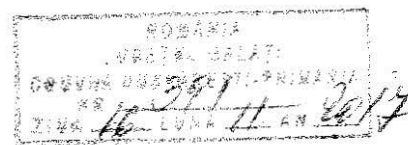 ROMÂNIA
JUDEȚUL GALAȚI
COMUNA PRIMĂRIA
NR. 391
ZIUA 16 LUNA 11 AN 2017